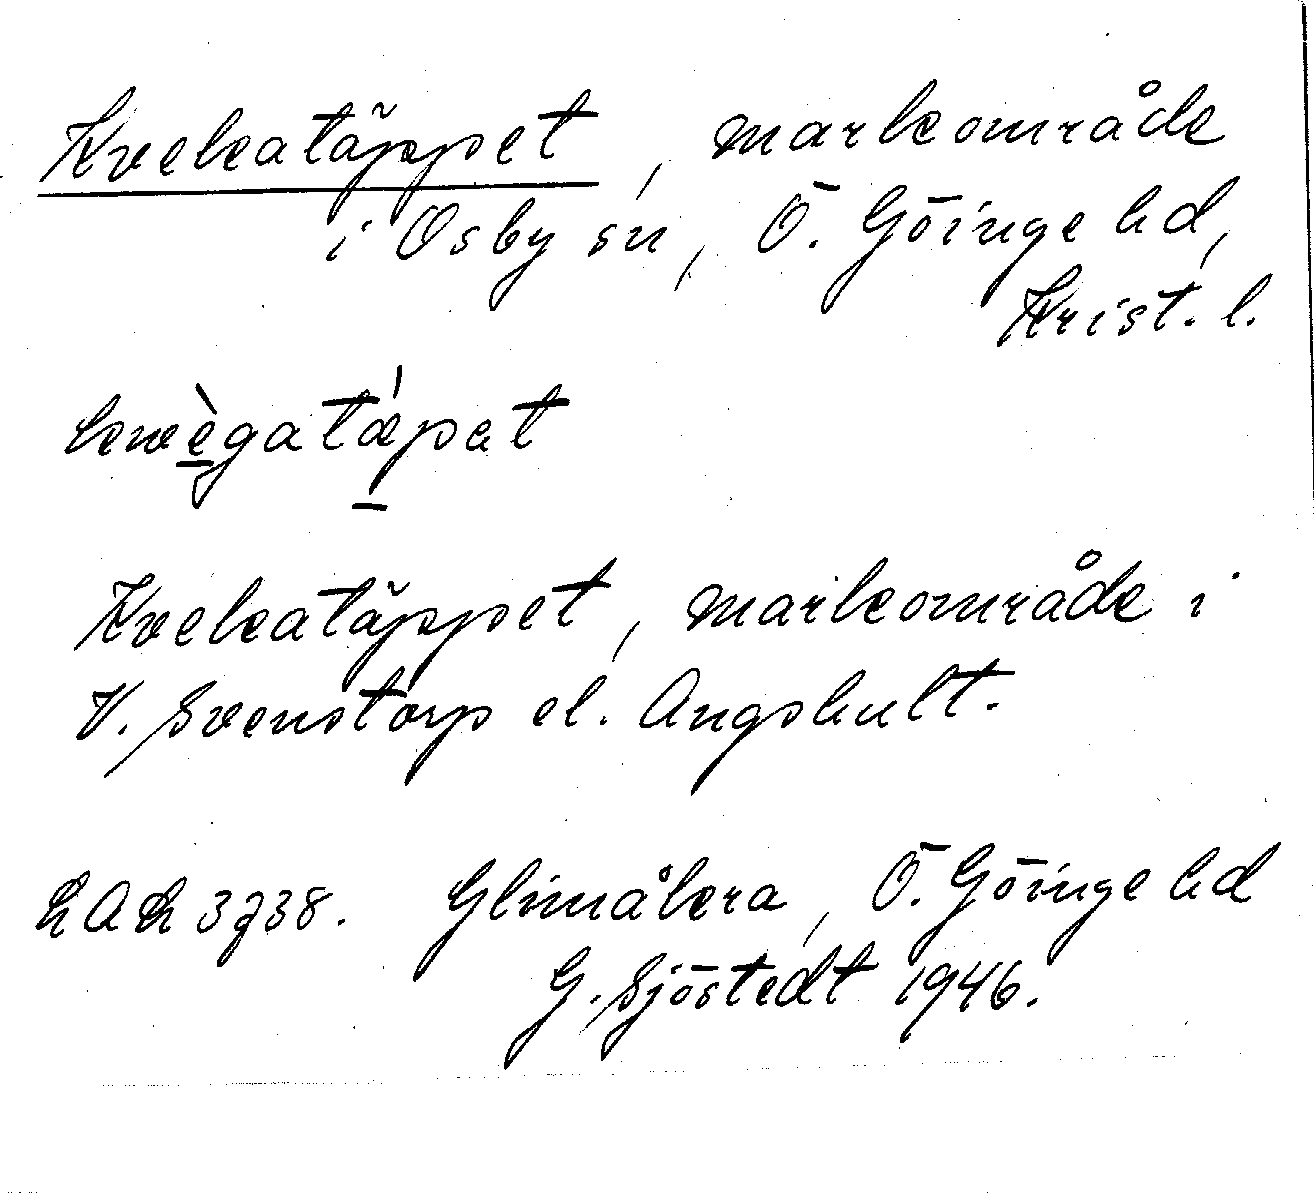 Kvekatäppet, markområde
i Osby sn, Ö. Göinge hd,
Krist. l.
kwègatǽpat
Kvekatäppet, markområde i
V. Svenstorp el. Angshult.
LAL 3738. Glimåkra, Ö. Göinge hd
G. Sjöstedt 1946.